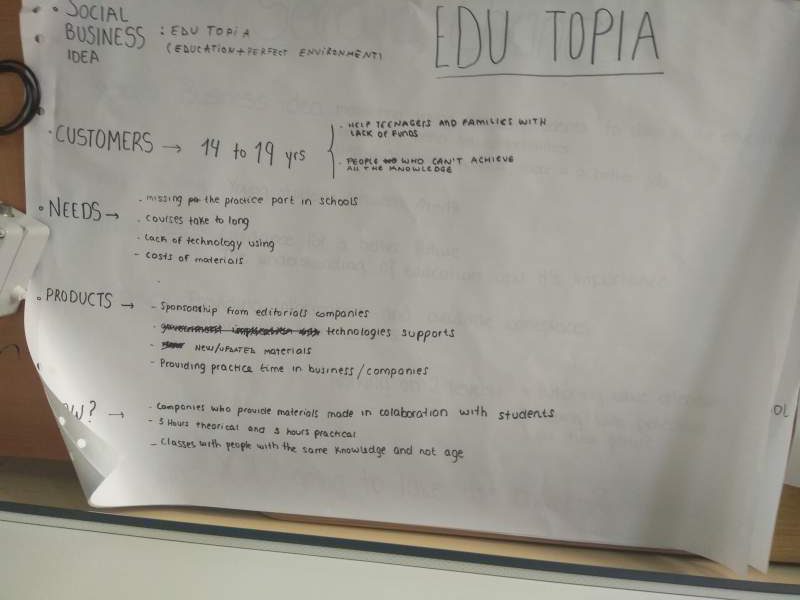 • SOCIAL BUSINESS IDEA : EDU TOPIA
(EDUCATION+PERFECT ENVIRONMENT)
EDU TOPIA
• CUSTOMERS → 14 to 19 yrs
• HELP TEENAGERS AND FAMILIES WITH
LACK OF FUNDS
• PEOPLE WHO CAN'T ACHIEVE
ALL THE KNOWLEDGE
• NEEDS →
• missing the practice part in schools
• courses take to long
• Lack of technology using
- costs of materials
• PRODUCTS →
- Sponsorship from editorials companies
- technologies supports
- NEW/UPDATED materials
- Providing practice time in business/companies
OW? →
- Companies who provide materials made in colaboration with students
- 3 Hours theorical and 3 hours practical
- Classes with people with the same knowladge and not age
OL